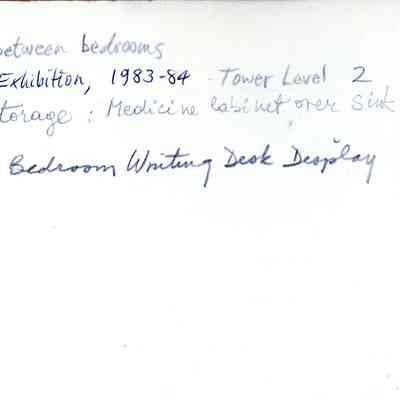 between bedrooms
Exhibition, 1983-84 - Tower Level 2
torage : Medicine Cabinet over Sink
Bedroom Writing Desk Desplay